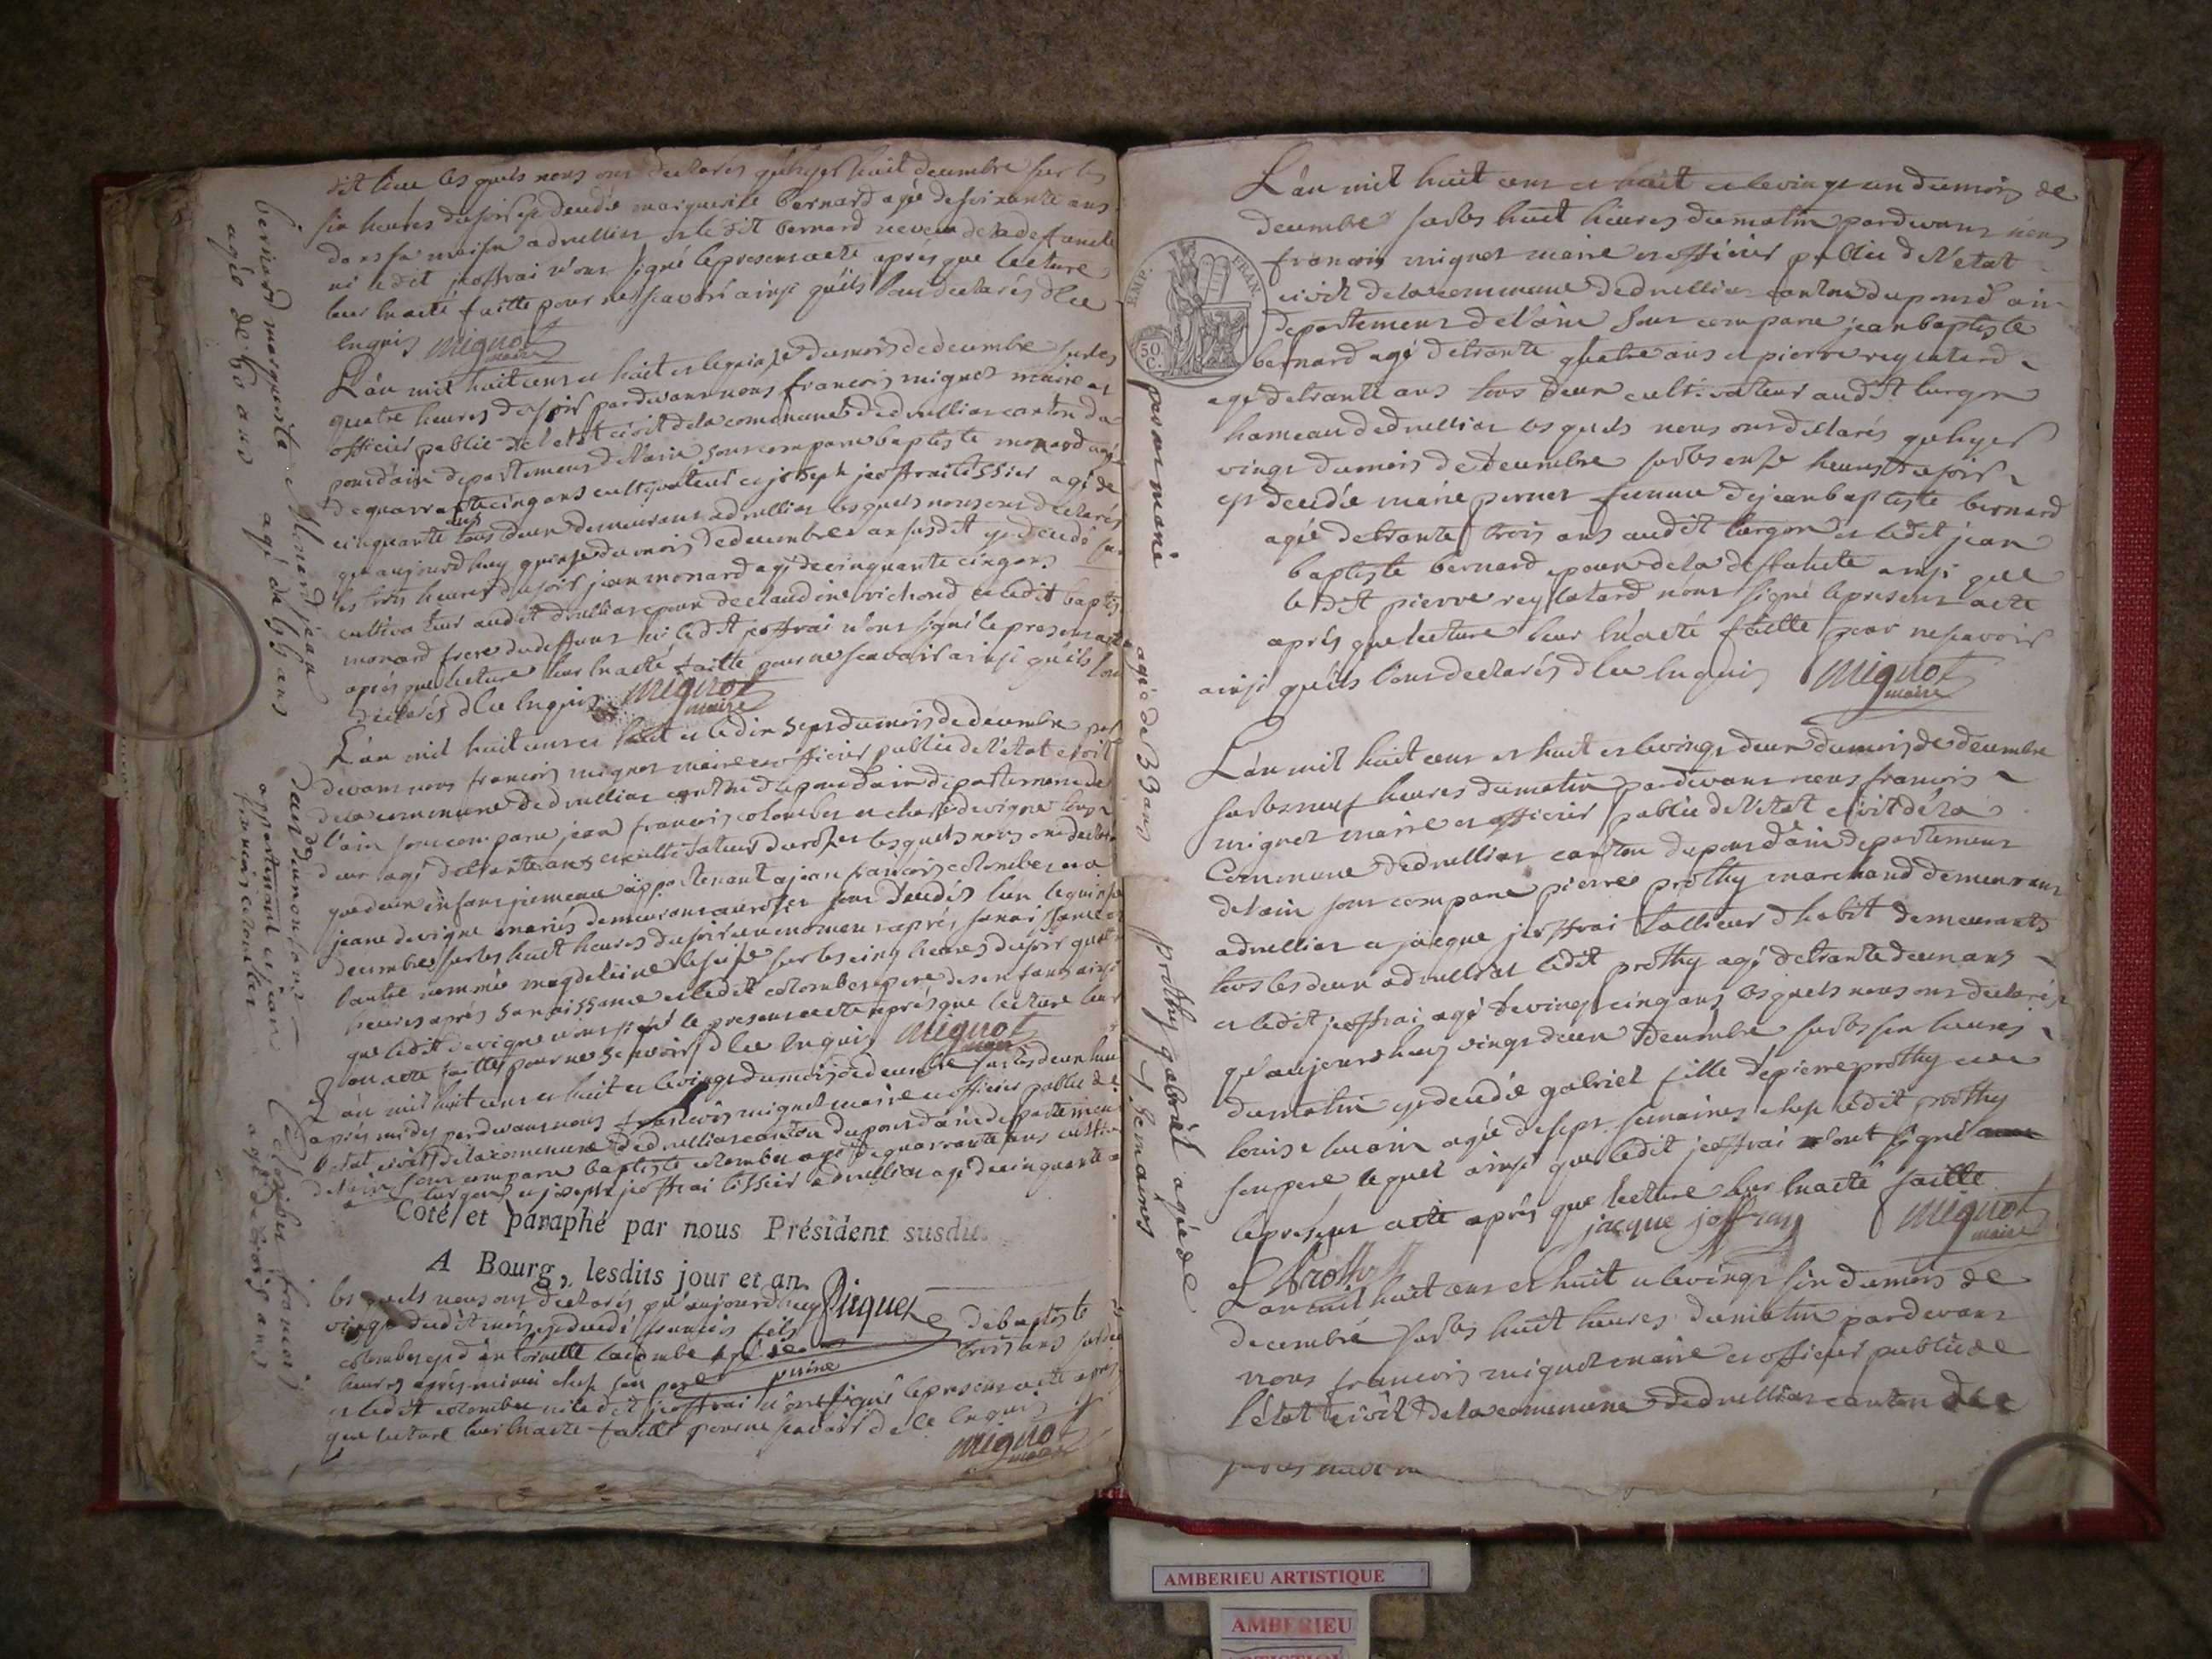 dit lieu lesquels nous ont declarés qu'hyer huit decembre sur les
six heures du soir est decedé marguerite bernard agée de soixante ans
dans sa maison a druillias et ledit bernard neveu de la deffunte
ni ledit joffrai n'ont signé le present acte après que lecture
leur en a eté faitte pour ne scavoir ainsi qu'ils l'ont declarés de ce
enquis mignot
maire
L'an mil huit cens et huit et le quinze du mois de decembre sur les
quatre heures du soir pardevant nous francois mignot maire et
officier public de l'etat civil de la commune de druillias canton du
pont d'ain departement de l'ain sont comparu baptiste monard agé
de quarrante cinq ans cultivateur et joseph joffrai tissier agé de
cinquante ans tous deux demeurant a druillias lesquels nous ont declarés
que aujourd'huy quinze du mois de decembre an susdit est decedé sur
les trois heures du soir jean monard agé de cinquante cinq ans
cultivateur audit druillias epoux de claudine richond et ledit baptiste
monard frere du deffunt ni ledit joffrai n'ont signé le present acte
après que lecture leur en a eté faitte pour ne scavoir ainsi qu'ils l'ont
declarés de ce enquis mignot
maire
L'an mil huit cens et huit et le dix sept du mois de decembre par
devant nous francois mignot maire et officier public de l'etat civil
de la commune de druillias canton de pont d'ain departement de
l'ain sont comparu jean francois colomber et charle devigne tous
deux agé de trante ans et cultivateur lesquels nous ont declaré
que deux enfans jumeaux appartenant a jean francois colomber et a
jeane devigne mariés demeurant sont decedés l'un le quinze
decembre sur les huit heures du soir un moment après sa naissance et
l'autre nommée magdeleine le seize sur les cinq heures du soir quatre
heures après sa naissance et ledit colomber pere des enfans ainsi
que ledit devigne n'ont signé le present acte après que lecture leur
en a eté faitte pour ne scavoir de ce enquis mignot
maire
L'an mil huit cens et huit et le vingt du mois de decembre sur les deux heures
après midy pardevant nous francois mignot maire et officier public de
l'etat civil de la commune de druillias canton du pont d'ain departement
de l'ain sont comparu baptiste colomber agé de quarrante ans cultivateur
a turgon et joseph joffrai tissier a druillias agé de cinquante ans
Coté et paraphé par nous Président susdit.
A Bourg, lesdits jour et an.
lesquels nous ont declarés qu'aujourd'huy
vingt dudit mois est decedé francois fils de baptiste
colomber et d'antoinette lacombe agé de trois ans sur
heures après minui chez son pere
et ledit colomber ni ledit joffrai n'ont signé le present acte après
que lecture leur en a eté faitte pour ne scavoir de ce enquis
mignot
maire
bernard marguerite
agée de 60 ans
Monard jean
agé de 55 ans
deux enfans
appartenant a jean
francois colomber
Colomber francois
agé de trois ans
EMP. FRAN.
50 C.
pernet marie
agée de 33 ans
prothy gabriel agée de
7 semaines
L'an mil huit cens et huit et le vingt un du mois de
decembre sur les huit heures du matin pardevant nous
francois mignot maire et officier public de l'etat
civil de la commune de druillias canton du pond ain
departement de l'ain sont comparu jean baptiste
bernard agé de trante quatre ans et pierre rey latard
agé de trante ans tous deux cultivateur audit turgon
hameau de druillias lesquels nous ont declarés qu'hyer
vingt du mois de decembre sur les onze heures du soir
est decedée marie pernet femme de jean baptiste bernard
agée de trante trois ans audit turgon et ledit jean
baptiste bernard epoux de la deffunte ainsi que
ledit pierre rey latard n'ont signé le present acte
après que lecture leur en a eté faitte pour ne scavoir
ainsi qu'ils l'ont declarés de ce enquis mignot
maire
L'an mil huit cens et huit et le vingt deux du mois de decembre
sur les neuf heures du matin pardevant nous francois
mignot maire et officier public de l'etat civil de la
Commune de druillias canton du pond d'ain departement
de l'ain sont comparu pierre prothy marchand demeurant
a druillias et jacque joffrai tallieur d'habit demeurants
tous les deux a druillias ledit prothy agé de trante deux ans
et ledit joffrai agé de vingt cinq ans lesquels nous ont declarés
qu'aujourd'huy vingt deux decembre sur les six heures
du matin est decedée gabriel fille de pierre prothy et de
louise agée de sept semaines chez ledit prothy
son pere lequel ainsi que ledit joffrai ont signé
le present acte après que lecture leur en a eté faitte
jacque joffray mignot
maire
Prothy
L'an mil huit cens et huit et le vingt six du mois de
decembre sur les huit heures du matin pardevant
nous francois mignot maire et officier public de
l'etat civil de la commune de druillias canton de
AMBERIEU ARTISTIQUE
AMBERIEU
ARTISTIQUE